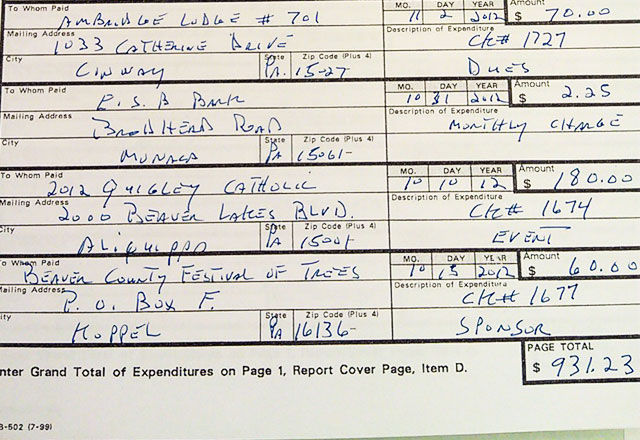 To Whom Paid AMBRIDGE LODGE # 701 MO. 11 DAY 2 YEAR 2012 Amount $ 70.00
Mailing Address 1033 CATHERINE DRIVE Description of Expenditure CK# 1727
City CONWAY State PA. Zip Code (Plus 4) 15-27 DUES
To Whom Paid E.S.B BANK MO. 10 DAY 31 YEAR 2012 Amount $ 2.25
Mailing Address BROADHEAD ROAD Description of Expenditure MONTHLY CHARGE
City MONACA State PA Zip Code (Plus 4) 15061-
To Whom Paid 2012 QUIGLEY CATHOLIC MO. 10 DAY 10 YEAR 12 Amount $ 180.00
Mailing Address 2000 BEAVER LAKES BLVD. Description of Expenditure CK# 1674
City ALIQUIPPA State PA Zip Code (Plus 4) 15001 EVENT
To Whom Paid BEAVER COUNTY FESTIVAL OF TREES MO. 10 DAY 15 YEAR 2012 Amount $ 60.00
Mailing Address P.O. BOX F. Description of Expenditure CK# 1677
City KOPPEL State PA Zip Code (Plus 4) 16136- SPONSOR
PAGE TOTAL
nter Grand Total of Expenditures on Page 1, Report Cover Page, Item D. $ 931.23
B-502 (7-99)